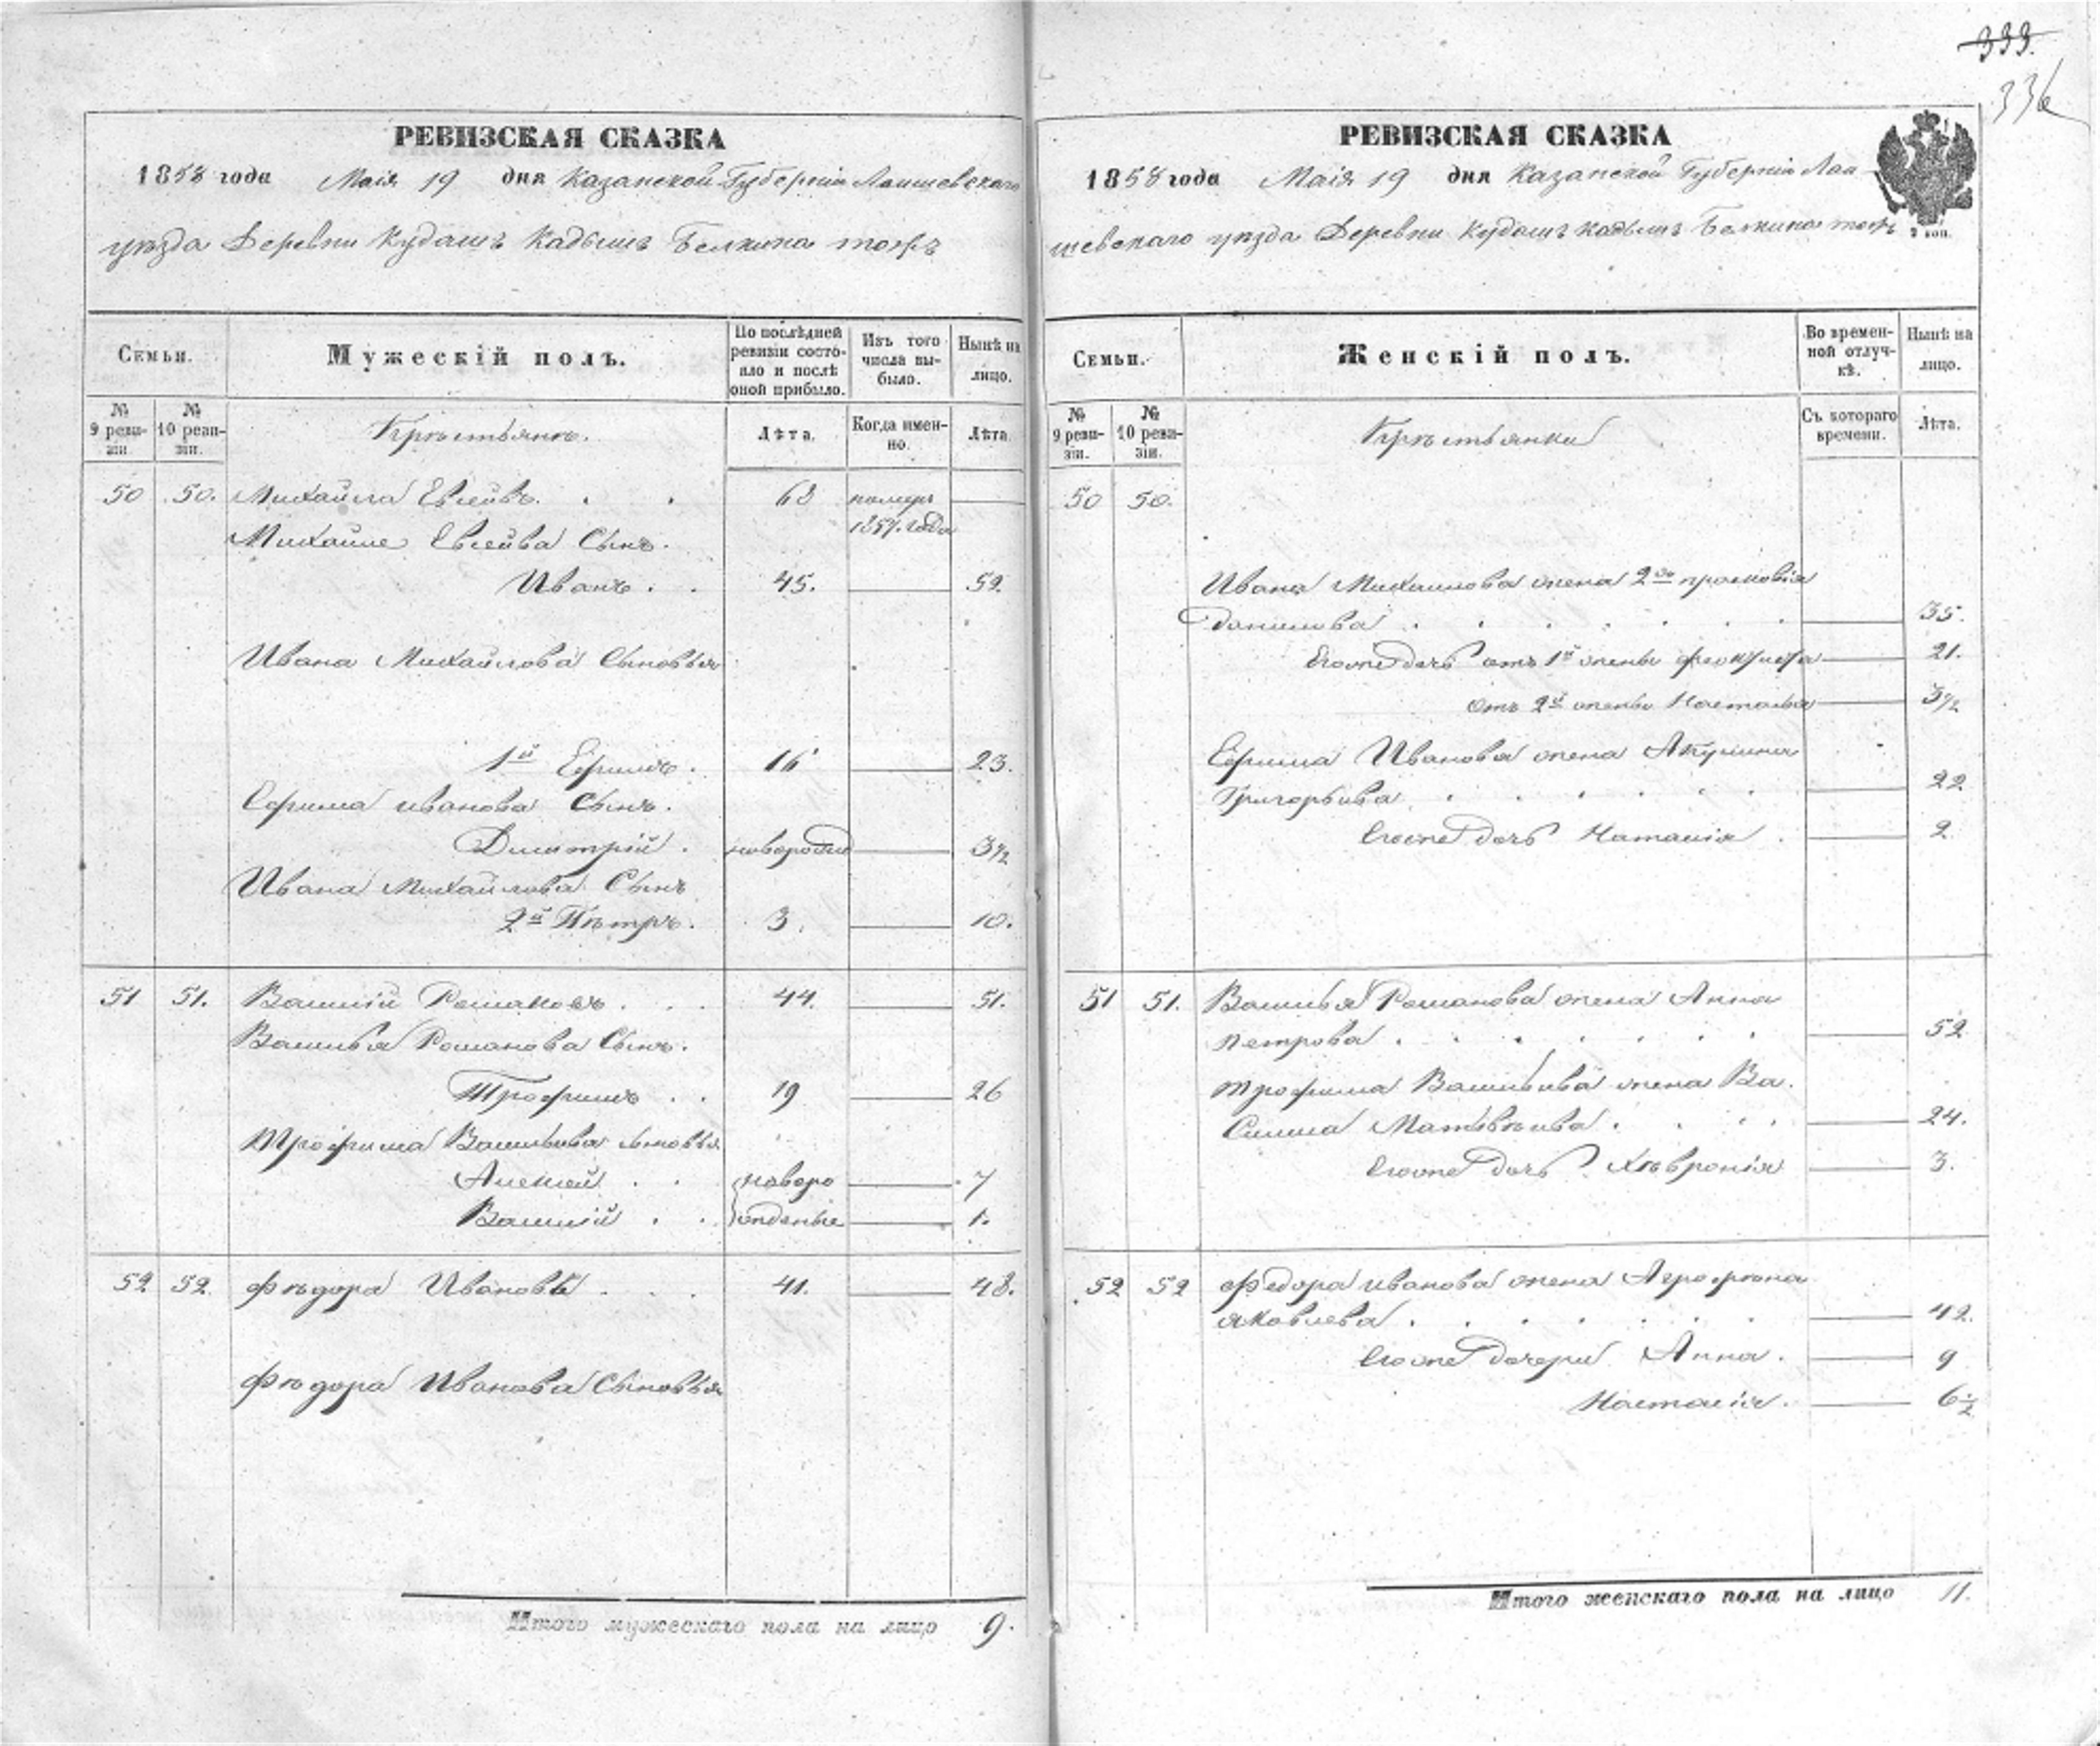 333.
336
РЕВИЗСКАЯ СКАЗКА
1858 года Маія 19 дня Казанской Губерніи Лаишевскаго
уѣзда Деревни Кудашъ Кадышъ Белкина тожъ
Семьи.
Мужескій полъ.
По послѣдней ревизіи состояло и послѣ оной прибыло.
Изъ того числа выбыло.
Нынѣ на лицо.
№ 9 ревизіи.
№ 10 ревизіи.
Кръстьянъ.
Лѣта.
Когда именно.
Лѣта.
50 50. Михайла Евсеивъ. 63 померъ
1857. года
Михайле Евсеива Сынъ.
Иванъ. 45. 52.
Ивана Михайлова Сыновья
1й Ефимъ. 16 23.
Ефима иванова Сынъ.
Дмитрій. новорожд 3½
Ивана Михайлова Сынъ
2й Пътръ. 3. 10.
51 51. Василій Романовъ. 44. 51.
Василья Романова Сынъ.
Трофимъ 19 26
Трофима Васильива сыновья
Алексей новоро 7
Василій жденые 1.
52 52. Фъдоръ Ивановъ 41. 48.
Фъдора Иванова Сыновья
Итого мужескаго пола на лицо 9.
РЕВИЗСКАЯ СКАЗКА
1858 года Маія 19 дня Казанской Губерніи Лаи-
шевскаго уѣзда Деревни Кудашъ Кадышъ Белкина тожъ
Семьи.
Женскій полъ.
Во временной отлучкѣ.
Нынѣ на лицо.
№ 9 ревизіи.
№ 10 ревизіи.
Кръстьянки
Съ котораго времени.
Лѣта.
50 50.
Ивана Михаилова жена 2я прасковія
Данилова 35.
Егоже дочь отъ 1й жены Феоктиста 21.
Отъ 2й жены Насталья 3½
Ефима Иванова жена Акулина
Григорьива 22
Егоже дочь Наталія 2
51 51. Василья Романова жена Анна
петрова 52
Трофима Васильива жена Ва.
Силиса Матвъива. 24.
Егоже дочь Хъвронія 3.
52 52 Федора иванова жена Аграфена
яковлева 42.
Егоже дочери Анна. 9
Насталія. 6½
Итого женскаго пола на лицо 11.